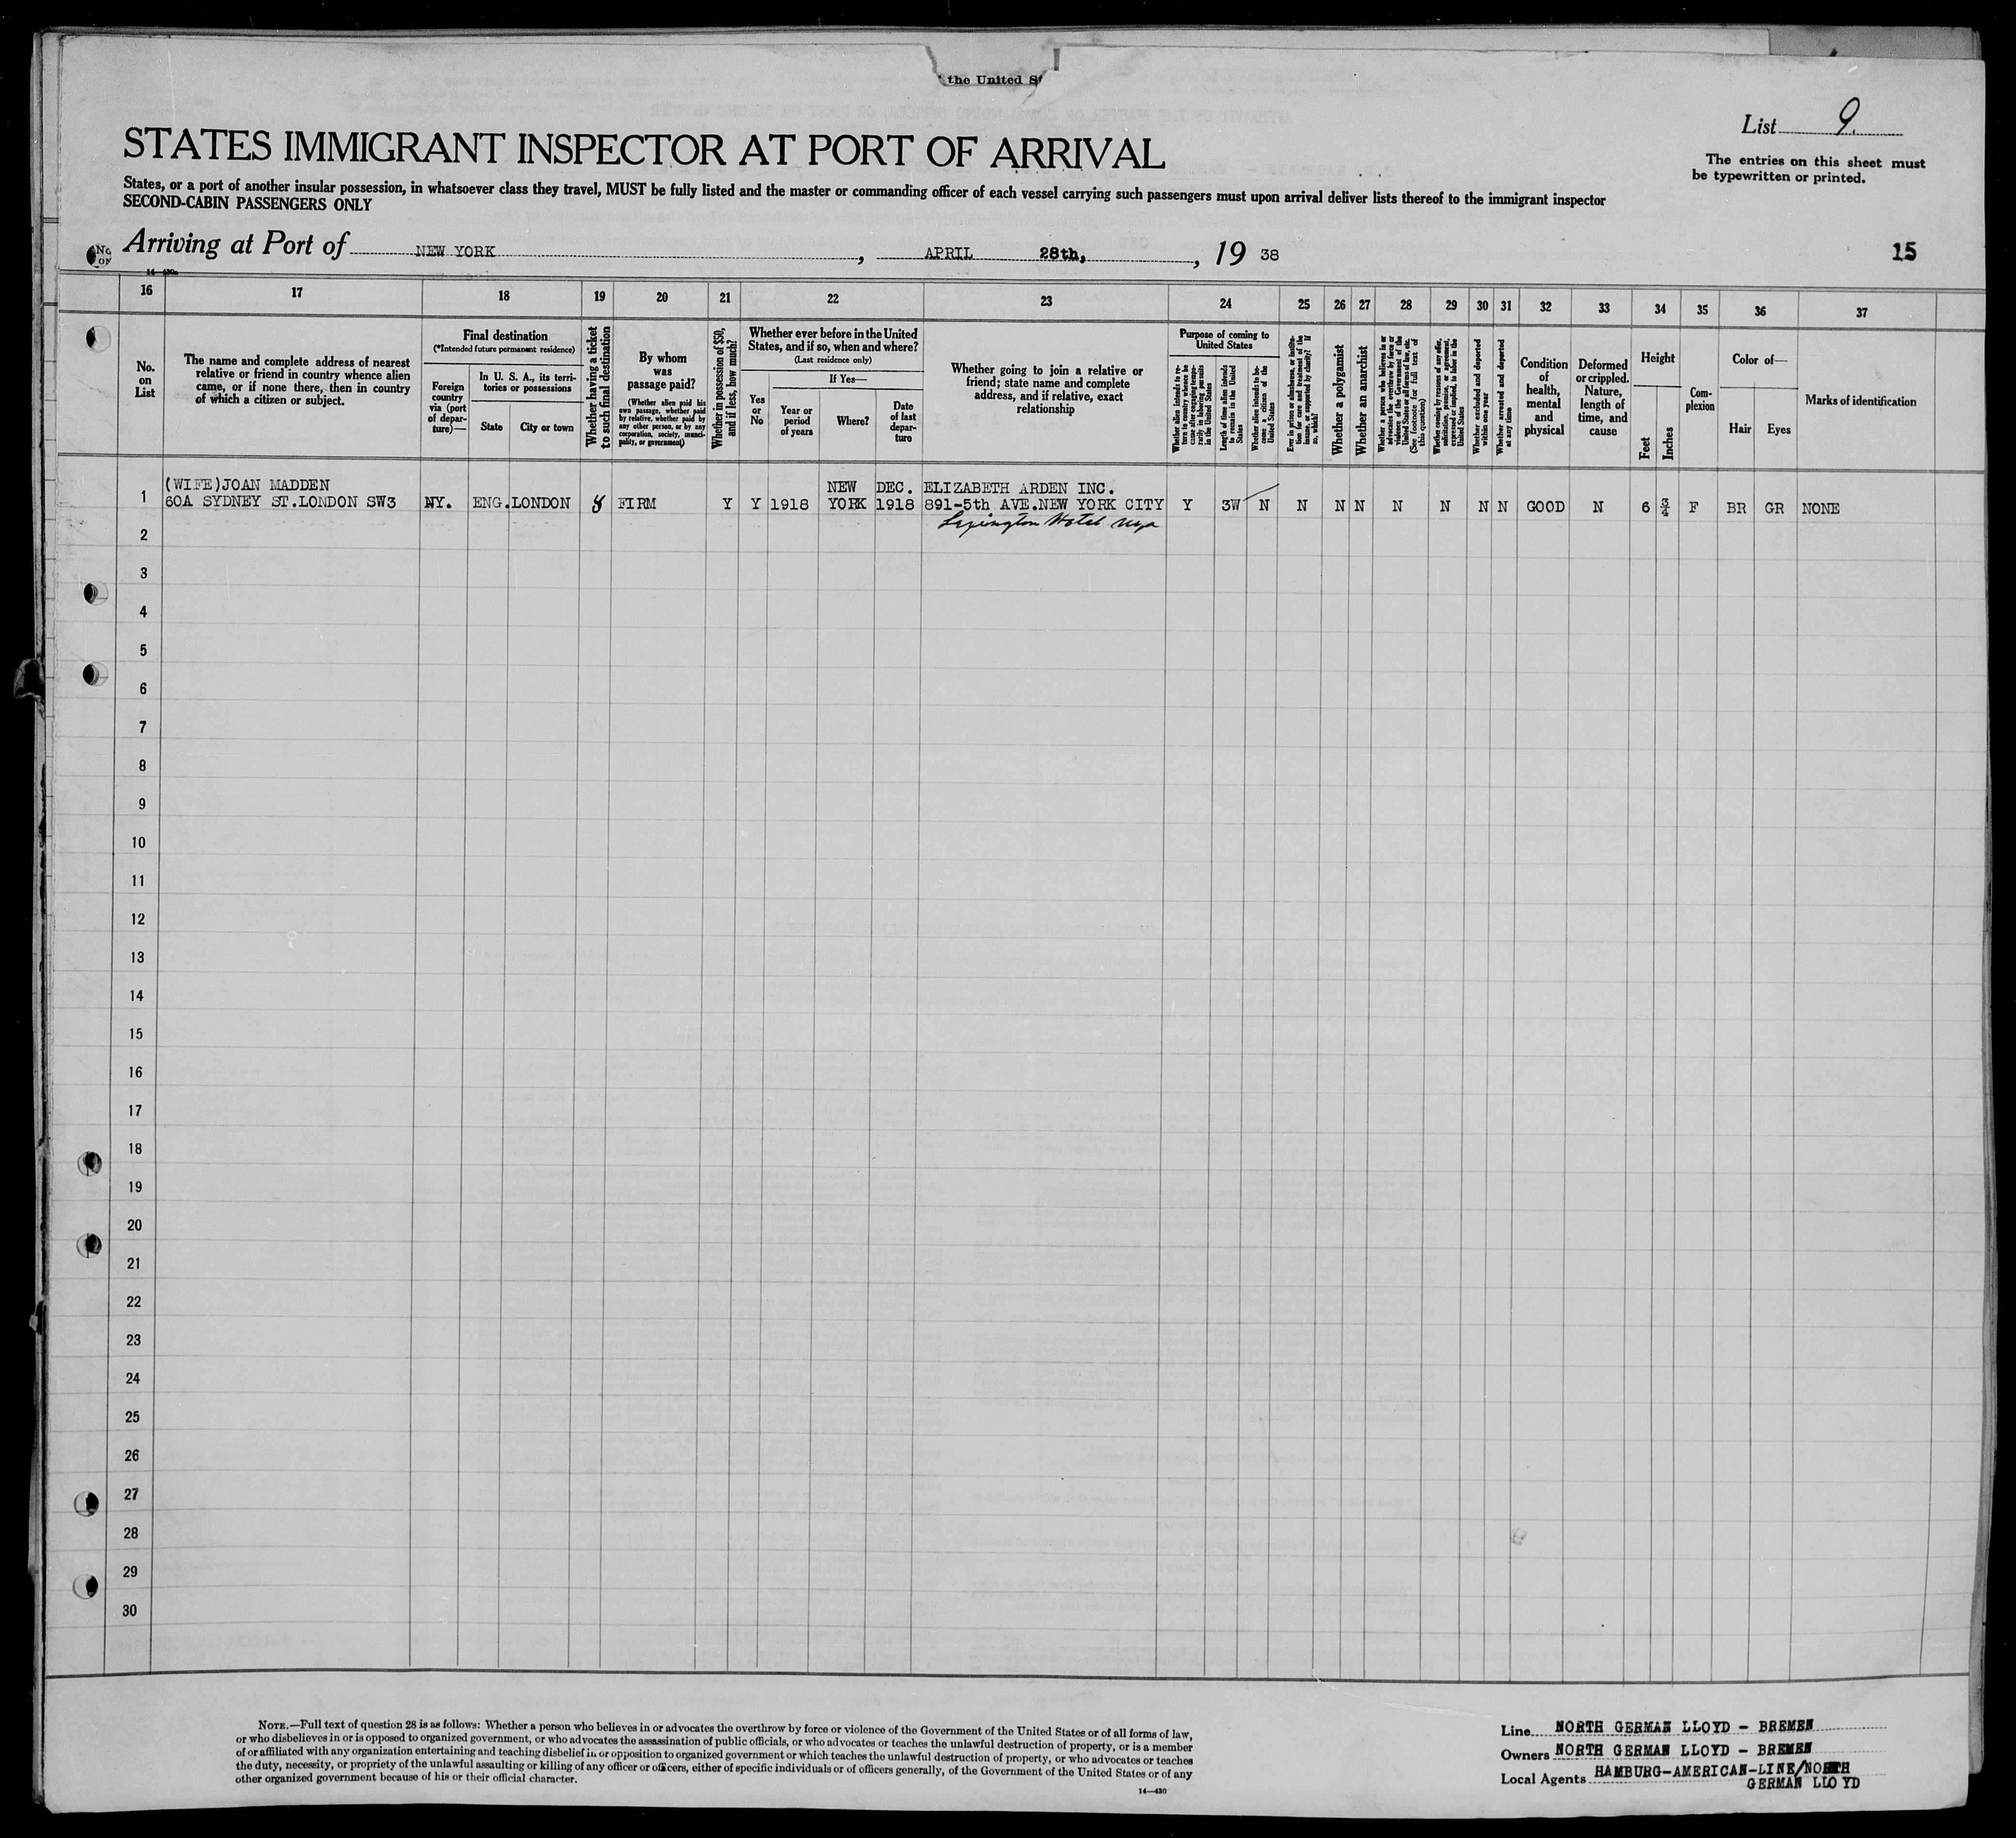 the United St
List 9.
STATES IMMIGRANT INSPECTOR AT PORT OF ARRIVAL
The entries on this sheet must
be typewritten or printed.
States, or a port of another insular possession, in whatsoever class they travel, MUST be fully listed and the master or commanding officer of each vessel carrying such passengers must upon arrival deliver lists thereof to the immigrant inspector
SECOND-CABIN PASSENGERS ONLY
Arriving at Port of NEW YORK, APRIL 28th, 19 38
15
16 17 18 19 20 21 22 23 24 25 26 27 28 29 30 31 32 33 34 35 36 37
No.
on
List
The name and complete address of nearest
relative or friend in country whence alien
came, or if none there, then in country
of which a citizen or subject.
Final destination
(*Intended future permanent residence)
Foreign
country
via (port
of depar-
ture)—
In U. S. A., its terri-
tories or possessions
State
City or town
Whether having a ticket
to such final destination
By whom
was
passage paid?
(Whether alien paid his
own passage, whether paid
by relative, whether paid by
any other person, or by any
corporation, society, munici-
pality, or government)
Whether in possession of $50,
and if less, how much?
Whether ever before in the United
States, and if so, when and where?
(Last residence only)
Yes
or
No
If Yes—
Year or
period
of years
Where?
Date
of last
depar-
ture
Whether going to join a relative or
friend; state name and complete
address, and if relative, exact
relationship
Purpose of coming to
United States
Whether alien intends to re-
turn to country whence he
came after engaging tempo-
rarily in laboring pursuits
in the United States
Length of time alien intends
to remain in the United
States
Whether alien intends to be-
come a citizen of the
United States
Ever in prison or almshouse, or institu-
tion for care and treatment of the
insane, or supported by charity? If
so, which?
Whether a polygamist
Whether an anarchist
Whether a person who believes in or
advocates the overthrow by force or
violence of the Government of the
United States or all forms of law, etc.
(See footnote for full text of
this question)
Whether coming by reasons of any offer,
solicitation, promise, or agreement,
expressed or implied, to labor in the
United States
Whether excluded and deported
within one year
Whether arrested and deported
at any time
Condition
of
health,
mental
and
physical
Deformed
or crippled.
Nature,
length of
time, and
cause
Height
Feet
Inches
Com-
plexion
Color of—
Hair
Eyes
Marks of identification
(WIFE)JOAN MADDEN NEW DEC. ELIZABETH ARDEN INC.
1 60A SYDNEY ST.LONDON SW3 NY. ENG.LONDON Y FIRM Y Y 1918 YORK 1918 891-5th AVE.NEW YORK CITY Y 3W N N N N N N N N GOOD N 6 3/4 F BR GR NONE
Lexington Hotel nyc
2
3
4
5
6
7
8
9
10
11
12
13
14
15
16
17
18
19
20
21
22
23
24
25
26
27
28
29
30
NOTE.—Full text of question 28 is as follows: Whether a person who believes in or advocates the overthrow by force or violence of the Government of the United States or of all forms of law,
or who disbelieves in or is opposed to organized government, or who advocates the assassination of public officials, or who advocates or teaches the unlawful destruction of property, or is a member
of or affiliated with any organization entertaining and teaching disbelief in or opposition to organized government or which teaches the unlawful destruction of property, or who advocates or teaches
the duty, necessity, or propriety of the unlawful assaulting or killing of any officer or officers, either of specific individuals or of officers generally, of the Government of the United States or of any
other organized government because of his or their official character.
14—430
Line NORTH GERMAN LLOYD - BREMEN
Owners NORTH GERMAN LLOYD - BREMEN
Local Agents HAMBURG-AMERICAN-LINE/NORTH
GERMAN LLOYD